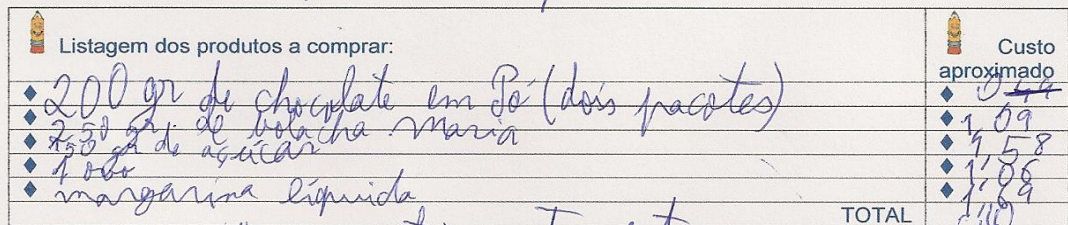 Listagem dos produtos a comprar:
Custo aproximado
200 gr de chocolate em Pó (dois pacotes)
250 gr. de bolacha Maria 1,09
150 gr de açúcar 1,58
1 ovo 1,06
margarina líquida 1,69
TOTAL